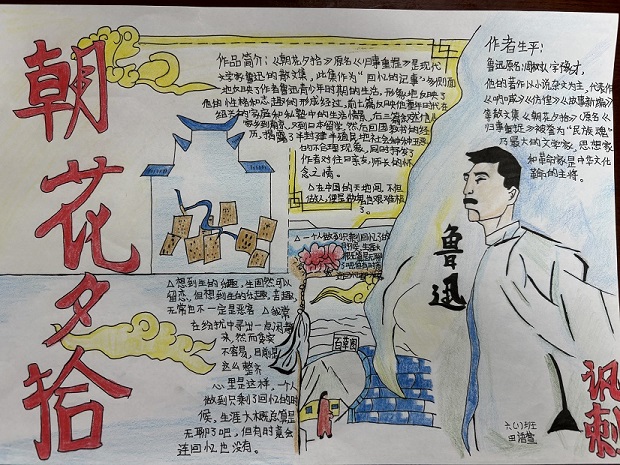 朝花夕拾
作品简介：《朝花夕拾》原名《旧事重提》是现代
文学家鲁迅的散文集，此集作为"回忆的记事"多侧面
地反映了作者鲁迅青少年时期的生活，形象地反映了
他的性格和志趣的形成经过。前七篇反映他童年时代在
绍兴的家庭和私塾中的生活情景，后三篇叙述他从
家乡到南京，又到日本留学，然后回国教书的经
历，揭露了半封建半殖民地社会种种丑恶
的不合理现象，同时抒发了
作者对往日亲友、师长的怀
念之情。
△在中国的天地间，不但
做人，便是做鬼，也艰难极
了。
作者生平：
鲁迅原名：周树人，字豫才，
他的著作以小说杂文为主，代表作
《呐喊》《彷徨》《故事新编》
等散文集《朝花夕拾》原名《
旧事重提》被誉为"民族魂"
乃最大的文学家，思想家
和革命家是中华文化
革命的主将。
△一个人做到只剩了回忆的
时候，生涯大
鲁迅
△想到生的乐趣，生固然可以
留恋，但想到生的苦趣，
无常也不一定是恶客
△我常
在纷扰中寻出一点闲静
来，然而委实
不容易，目前是
这么离奇
心里是这样。一个人
做到只剩了回忆的时
候，生涯大概总算是
无聊了吧，但有时竟会
连回忆也没有。
百草园
讽刺
六(1)班